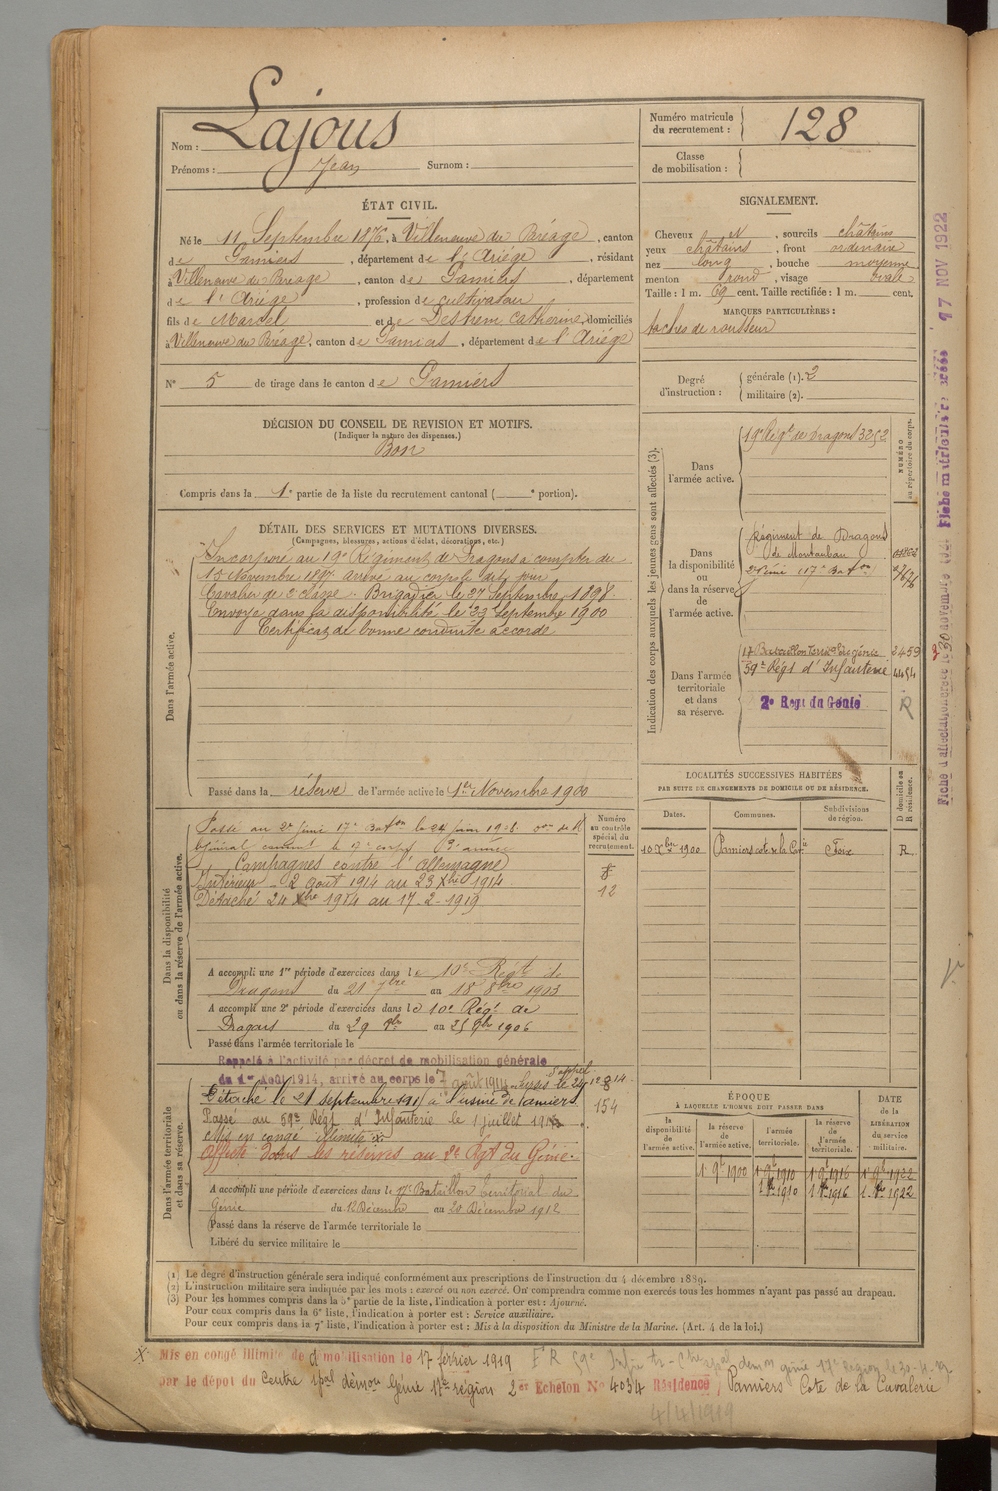 Nom : Lajous
Prénoms : Jean Surnom :
Numéro matricule du recrutement : 128
Classe de mobilisation :
ÉTAT CIVIL.
Né le 11 Septembre 1876, à Villeneuve du Paréage, canton
de Pamiers, département de l'Ariége, résidant
à Villeneuve du Paréage, canton de Pamiers, département
de l'Ariége, profession de cultivateur
fils de Marcel et de Destrem Catherine, domiciliés
à Villeneuve du Paréage, canton de Pamiers, département de l'Ariége
N° 5 de tirage dans le canton de Pamiers
SIGNALEMENT.
Cheveux N, sourcils châtains
yeux châtains, front ordinaire
nez long, bouche moyenne
menton rond, visage ovale
Taille : 1 m. 69 cent. Taille rectifiée : 1 m. cent.
MARQUES PARTICULIÈRES :
taches de rousseur
Degré d'instruction : générale (1). 2
militaire (2).
DÉCISION DU CONSEIL DE REVISION ET MOTIFS.
(Indiquer la nature des dispenses.)
Bon
Compris dans la 1e partie de la liste du recrutement cantonal ( e portion).
DÉTAIL DES SERVICES ET MUTATIONS DIVERSES.
(Campagnes, blessures, actions d'éclat, décorations, etc.)
Dans l'armée active.
Incorporé au 19e Régiment de Dragons à compter du
15 Novembre 1897 arrivé au corps le dit jour
Cavalier de 2e classe. Brigadier le 27 Septembre 1898
Envoyé dans la disponibilité le 23 Septembre 1900
Certificat de bonne conduite accordé
Passé dans la réserve de l'armée active le 1er Novembre 1900
Indication des corps auxquels les jeunes gens sont affectés (3).
NUMÉRO au répertoire du corps.
Dans l'armée active.
19e Régt de Dragons 3252
Dans la disponibilité ou dans la réserve de l'armée active.
Régiment de Dragons
de Montauban
2e Génie (17e Baton)
Dans l'armée territoriale et dans sa réserve.
17 Bataillon Terrial du génie 2459
59e Régt d'Infanterie 4454
2e Régt du Génie R
LOCALITÉS SUCCESSIVES HABITÉES
PAR SUITE DE CHANGEMENTS DE DOMICILE OU DE RÉSIDENCE.
Dates. Communes. Subdivisions de région. D domicile ou R résidence.
10 Xbre 1900 Pamiers cote de la Cavie Foix R
Dans la disponibilité ou dans la réserve de l'armée active.
Numéro au contrôle spécial du recrutement.
Passé au 2e Génie 17e Baton le 24 juin 1908.
Général command le 17e corps
Campagnes contre l'Allemagne
Intérieur - 2 août 1914 au 23 Xbre 1914
Détaché 24 Xbre 1914 au 17-2-1919
12
A accompli une 1re période d'exercices dans le 10e Régt de
Dragons du 21 7bre au 18 8bre 1903
A accompli une 2e période d'exercices dans le 10e Régt de
Dragons du 29 8bre au 25 9bre 1906
Passé dans l'armée territoriale le
Dans l'armée territoriale et dans sa réserve.
Rappelé à l'activité par décret de mobilisation générale
du 1er Août 1914, arrivé au corps le 7 août 1914
Détaché le 21 septembre 191 à l'usine de Pamiers
154
Passé au 59e Régt d'Infanterie le 1 juillet 191
Mis en congé illimité x
Affecté dans les réserves au 2e Rgt du Génie.
A accompli une période d'exercices dans le 17e Bataillon territorial du
Génie du 12 Décembre au 20 Décembre 1912
Passé dans la réserve de l'armée territoriale le
Libéré du service militaire le
ÉPOQUE
À LAQUELLE L'HOMME DOIT PASSER DANS
la disponibilité de l'armée active. la réserve de l'armée active. l'armée territoriale. la réserve de l'armée territoriale. DATE de la LIBÉRATION du service militaire.
1 9bre 1900 1 9bre 1910 1 9bre 1916 1 9bre 1922
1 8bre 1910 1 8bre 1916 1 8bre 1922
(1) Le degré d'instruction générale sera indiqué conformément aux prescriptions de l'instruction du 4 décembre 1889.
(2) L'instruction militaire sera indiquée par les mots : exercé ou non exercé. On comprendra comme non exercés tous les hommes n'ayant pas passé au drapeau.
(3) Pour les hommes compris dans la 5e partie de la liste, l'indication à porter est : Ajourné.
Pour ceux compris dans la 6e liste, l'indication à porter est : Service auxiliaire.
Pour ceux compris dans la 7e liste, l'indication à porter est : Mis à la disposition du Ministre de la Marine. (Art. 4 de la loi.)
X Mis en congé illimité de démobilisation le 17 février 1919
par le dépôt du Centre spal démon Génie 17e région 2er Echelon N° 4034 Résidence, Pamiers Cote de la Cavalerie
4/4/1919
17 NOV 1922